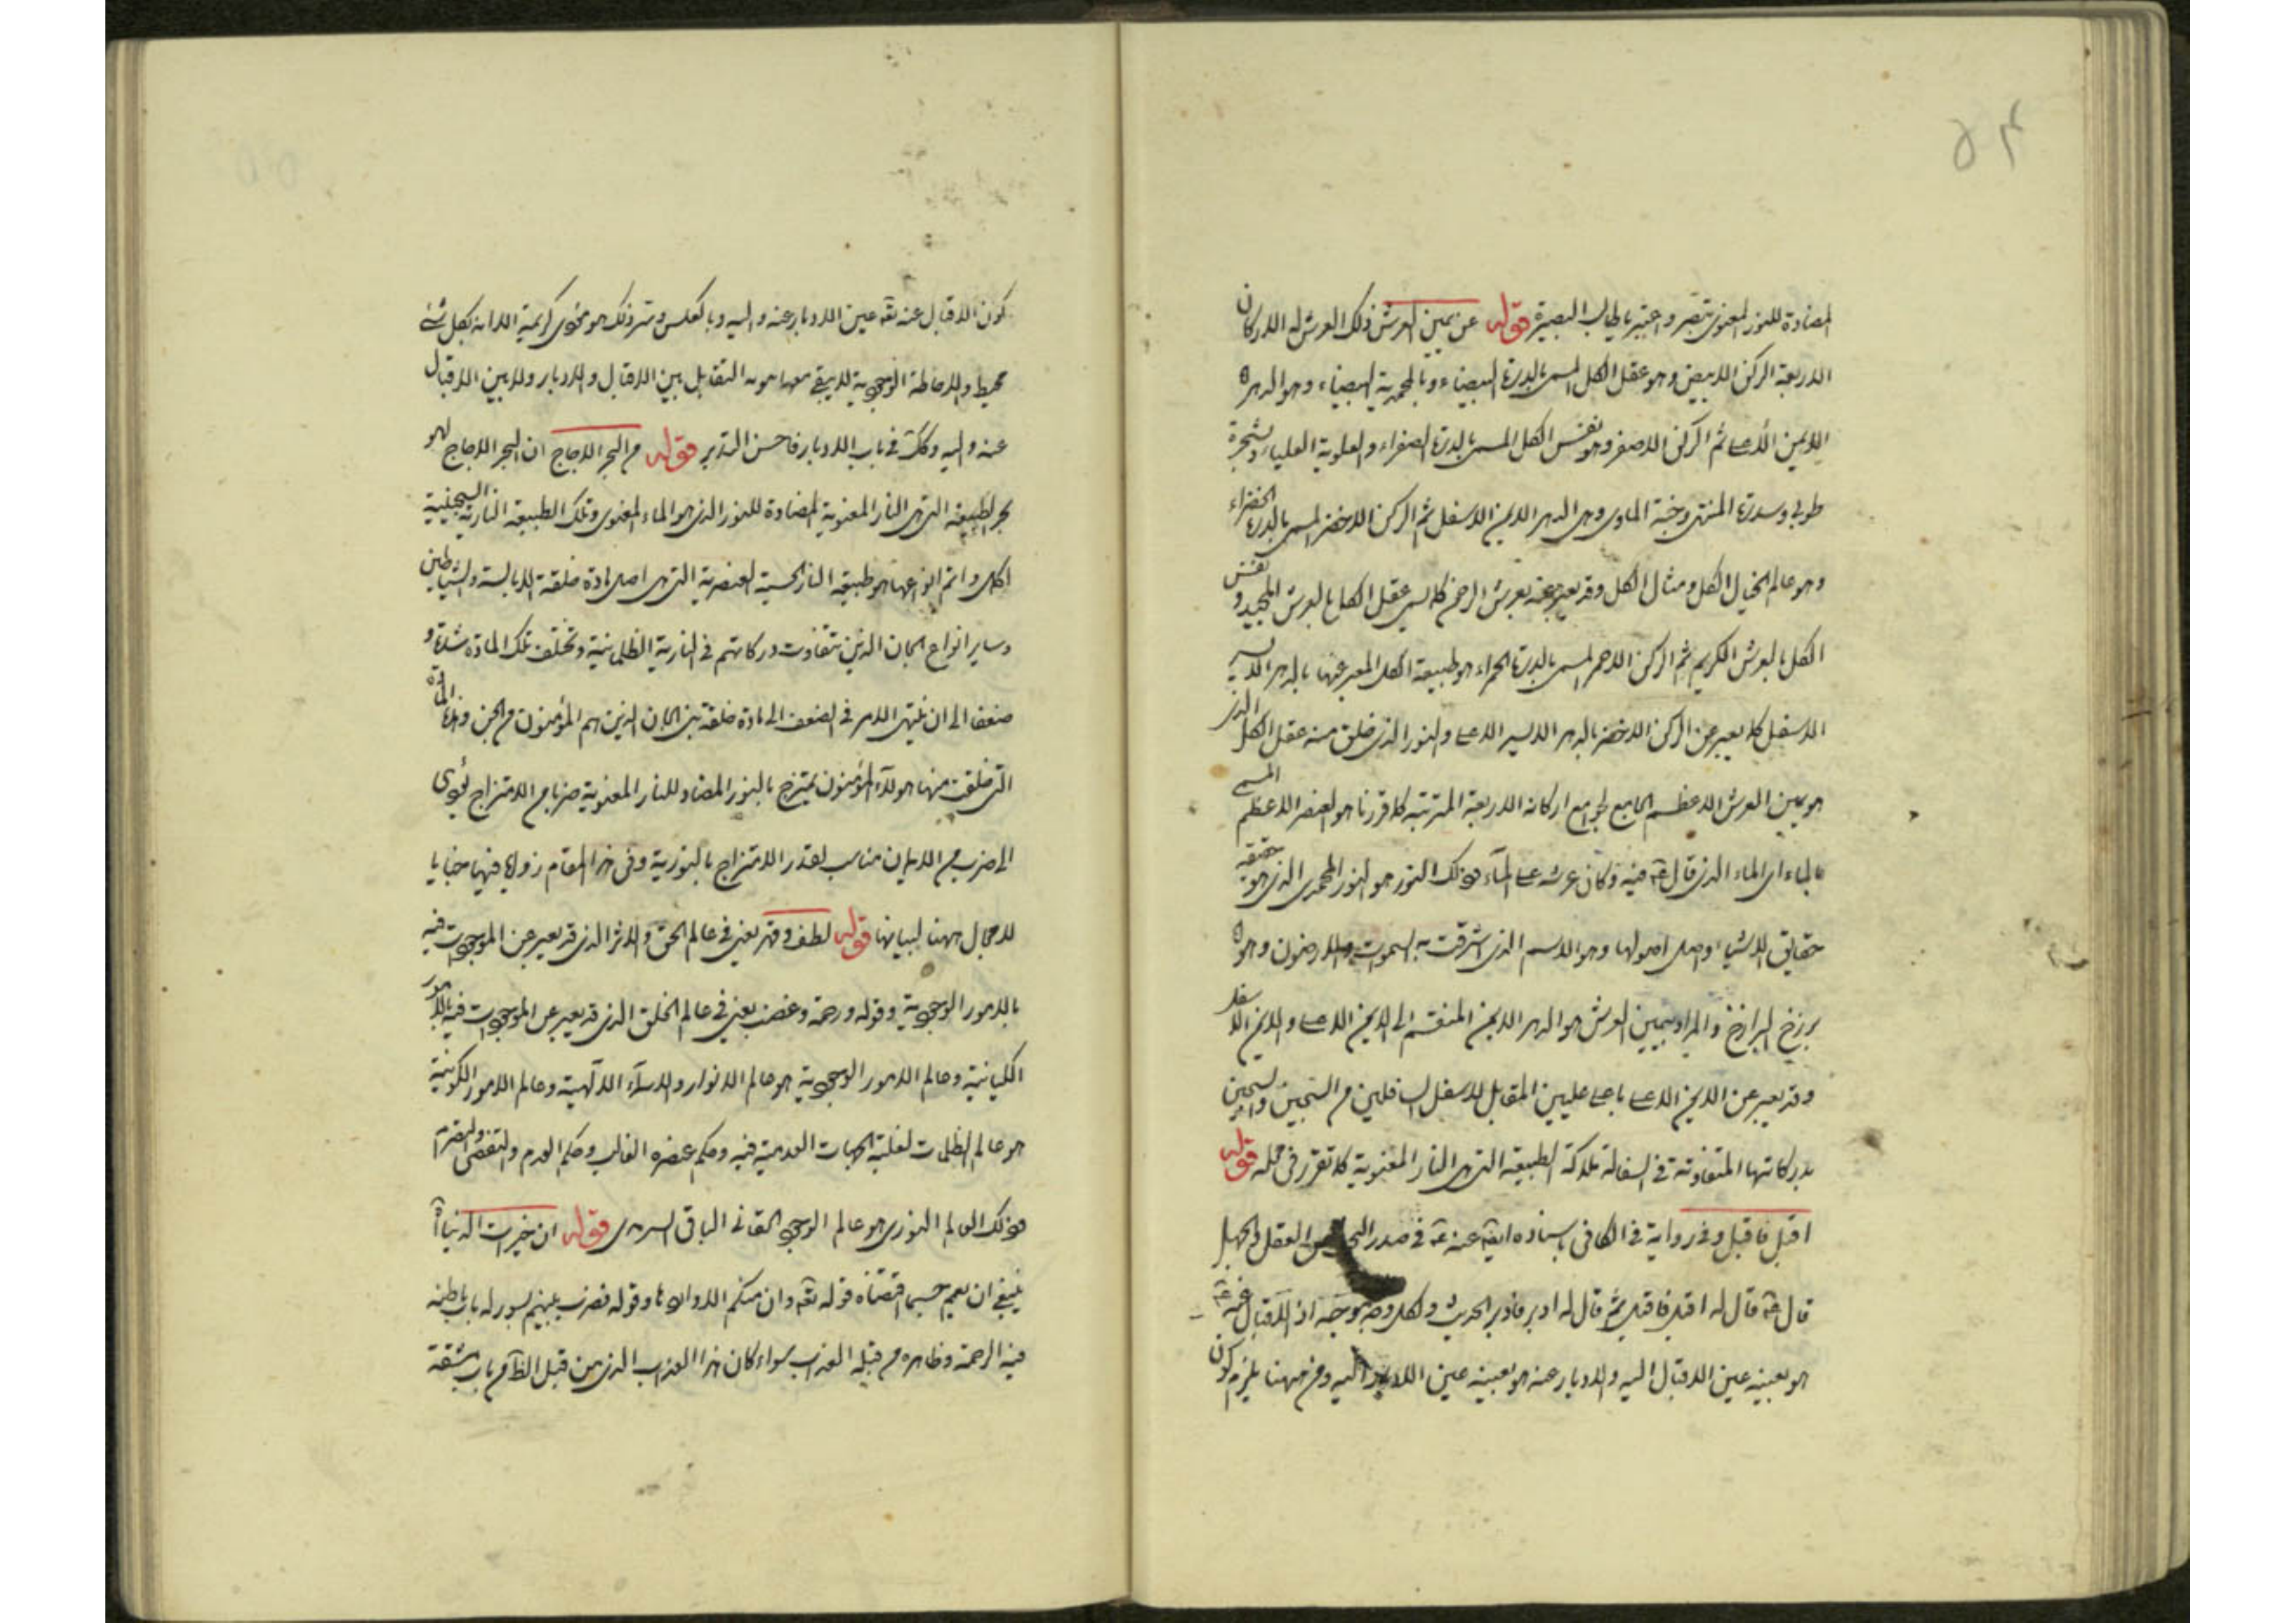 ۵۴
المضادة للنور المعنوى تبصر و اعتبر يا طالب البصيرة قوله عن يمين العرش ذلك العرش له الاركان
الاربعة الركن الابيض وهو عقل الكل المسمى بالدرة البيضاء و بالمحمدية البيضاء وهو الدهر
الايمن الأعلى ثم الركن الاصفر وهو نفس الكل المسمى بالدرة الصفراء و العلوية العليا و شجرة
طوبى و سدرة المنتهى و جنة الماوى وهى الدهر الايمن الاسفل ثم الركن الاخضر المسمى بالدرة الخضراء
وهو عالم الخيال الكل ومثال الكل وقد يعبر عنه بعرش الرحمن كما يسمى عقل الكل بالعرش المجيد و نفس
الكل بالعرش الكريم ثم الركن الاحمر المسمى بالدرة الحمراء هو طبيعة الكل المعبر عنها بالدهر الايسر
الاسفل كما يعبر عن الركن الاخضر بالدهر الايسر الاعلى والنور الذى خلق منه عقل الكل الذى
هو يمين العرش الاعظم الجامع لجوامع اركانه الاربعة المترتبة كما قررنا هو العنصر الاعظم المسمى
بالماء اى الماء الذى قال تعالى فيه وكان عرشه على المآء فذلك النور هو النور المحمدى الذى هو حقيقة
حقايق الاشياء و اصل اصولها وهو الاسم الذى اشرقت به السموات والارضون وهو
برزخ البرازخ والمراد بيمين العرش هو الدهر الايمن المنقسم الى الايمن الاعلى والايمن الاسفل
وقد يعبر عن الايمن الاعلى باعلى عليين المقابل لاسفل السافلين من السجين والسجين
بدركاتها المتفاوتة فى السفالة ملاكة الطبيعة التى هى النار المعنوية كما تقرر فى محله قوله
اقبل فاقبل وفى رواية فى الكافى باسناده ايضا عنه ع فى صدر العقل والجهل
قال ع قال له اقبل فاقبل ثم قال له ادبر فادبر الحديث ولكل وجه موجه اذ الاقبال عنه تعالى
هو بعينه عين الاقبال اليه والادبار عنه هو بعينه عين الادبار اليه ومن ههنا يلزم كون
كون الاقبال عنه تعالى عين الادبار عنه واليه وبالعكس وسر ذلك هو فحوى كريمة الا انه بكل شئ
محيط والاحاطة الوجوبية لا يبقى معها التقابل بين الاقبال والادبار ولا بين الاقبال
عنه واليه وكذلك فى باب الادبار فاحسن التدبر قوله من البحر الاجاج ان البحر الاجاج لهو
بحر الطبيعة التى هى النار المعنوية المضادة للنور الذى هو الماء المعنوى وتلك الطبيعة النارية السجينية
الكل و اتم انواعها هو طبيعة النار الحسية العنصرية التى هى اصل مادة خلقة الابالسة والشياطين
وساير انواع الجان الذين تتفاوت دركاتهم فى النارية الظلمانية و تختلف تلك المادة شدة و
ضعفا الى ان ينتهى الامر فى الضعف الى مادة خلقة بنى الجان الذين هم المؤمنون من الجن وهذه المادة
التى خلقت منها هولآء المؤمنون يمتزج بالنور المضاد للنار المعنوية ضربا من الامتزاج يؤدى
الى ضرب من الايمان مناسب لقدر الامتزاج بالنورية وفى هذا المقام زوايا فيها خبايا
لا مجال ههنا لبيانها قوله لطف وقهر يعنى فى عالم الحق والامر الذى قد يعبر عن الموجودات فيه
بالامور الوجوبية وقوله ورحمة وغضب يعنى فى عالم الخلق الذى قد يعبر عن الموجودات فيه بالامور
الكيانية وعالم الامور الوجوبية هو عالم الانوار والاسمآء الالهية وعالم الامور الكونية
هو عالم الظلمات لغلبة الجهات العدمية فيه وحكم عنصره الغالب وحكم العدم والنقص
فذلك العالم النورى هو عالم الوجوب الحقانى الباقى السرمدى قوله ان خيرات الدنيا
ينبغى ان يعم حسبما اقتضاه قوله تعالى وان منكم الا واردها وقوله فضرب بينهم بسور له باب باطنه
فيه الرحمة وظاهره من قبله العذاب سواء كان هذا العذاب الذى من قبل الظاهر من باب مشقة